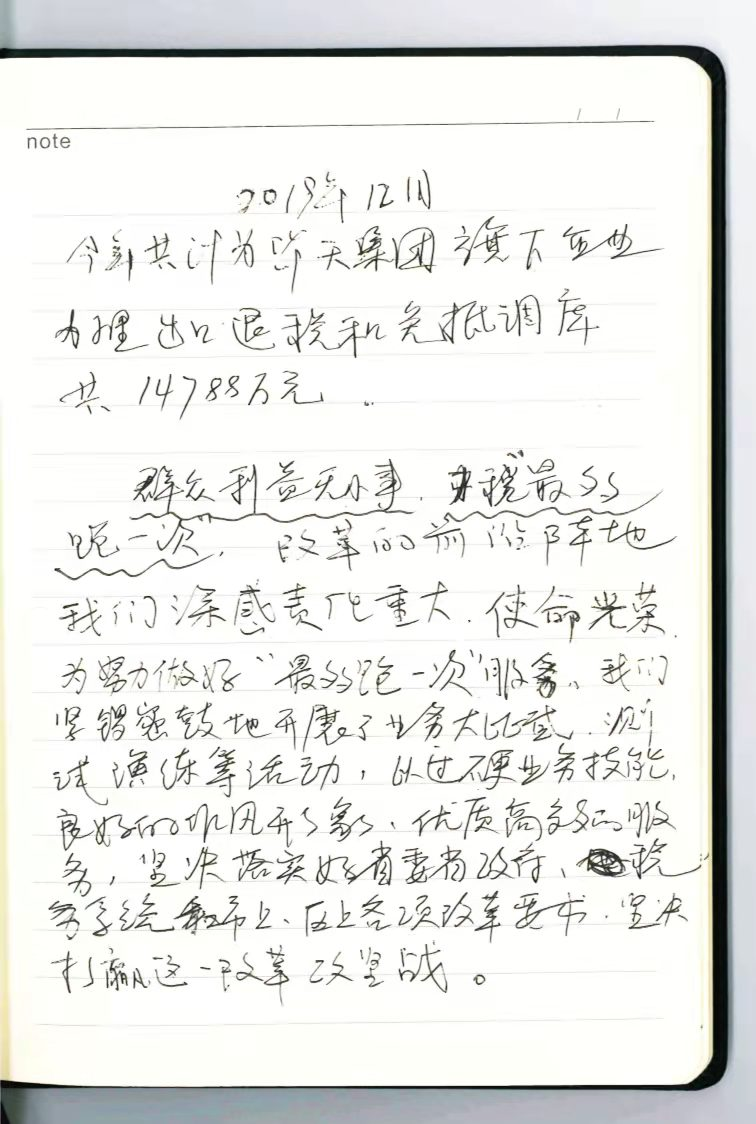 note
2019年12月
今年共计为华天集团旗下企业
办理出口退税和免抵调库
共14788万元。
群众利益无小事,办税“最多
跑一次”,改革的前沿阵地
我们深感责任重大,使命光荣,
为努力做好“最多跑一次”服务,我们
紧锣密鼓地开展了业务大比武,测
试演练等活动,以过硬业务技能,
良好的作风形象,优质高效的服
务,坚决落实好省委省政府、税
务系统和市上、区上各项改革要求,坚决
打赢这一改革攻坚战。